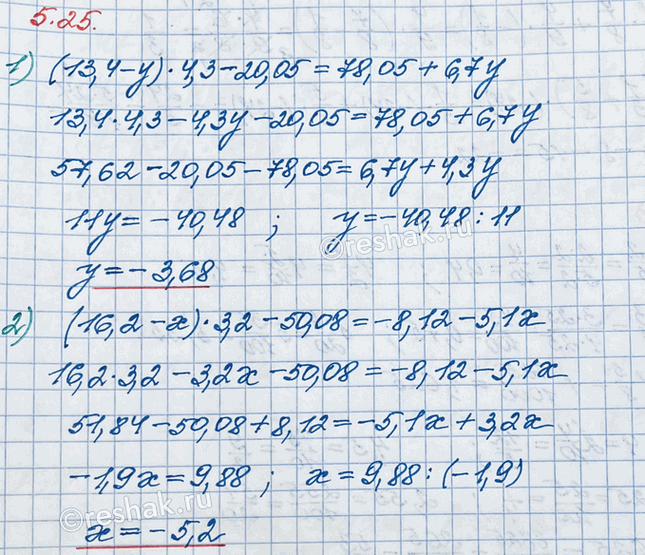 5.25.
1) (13,4-y)·4,3-20,05=78,05+6,7y
13,4·4,3-4,3y-20,05=78,05+6,7y
57,62-20,05-78,05=6,7y+4,3y
11y=-40,48 ; y=-40,48:11
©reshak.ru
y=-3,68
2) (16,2-x)·3,2-50,08=-8,12-5,1x
16,2·3,2-3,2x-50,08=-8,12-5,1x
51,84-50,08+8,12=-5,1x+3,2x
-1,9x=9,88 ; x=9,88:(-1,9)
©reshak.ru
x=-5,2